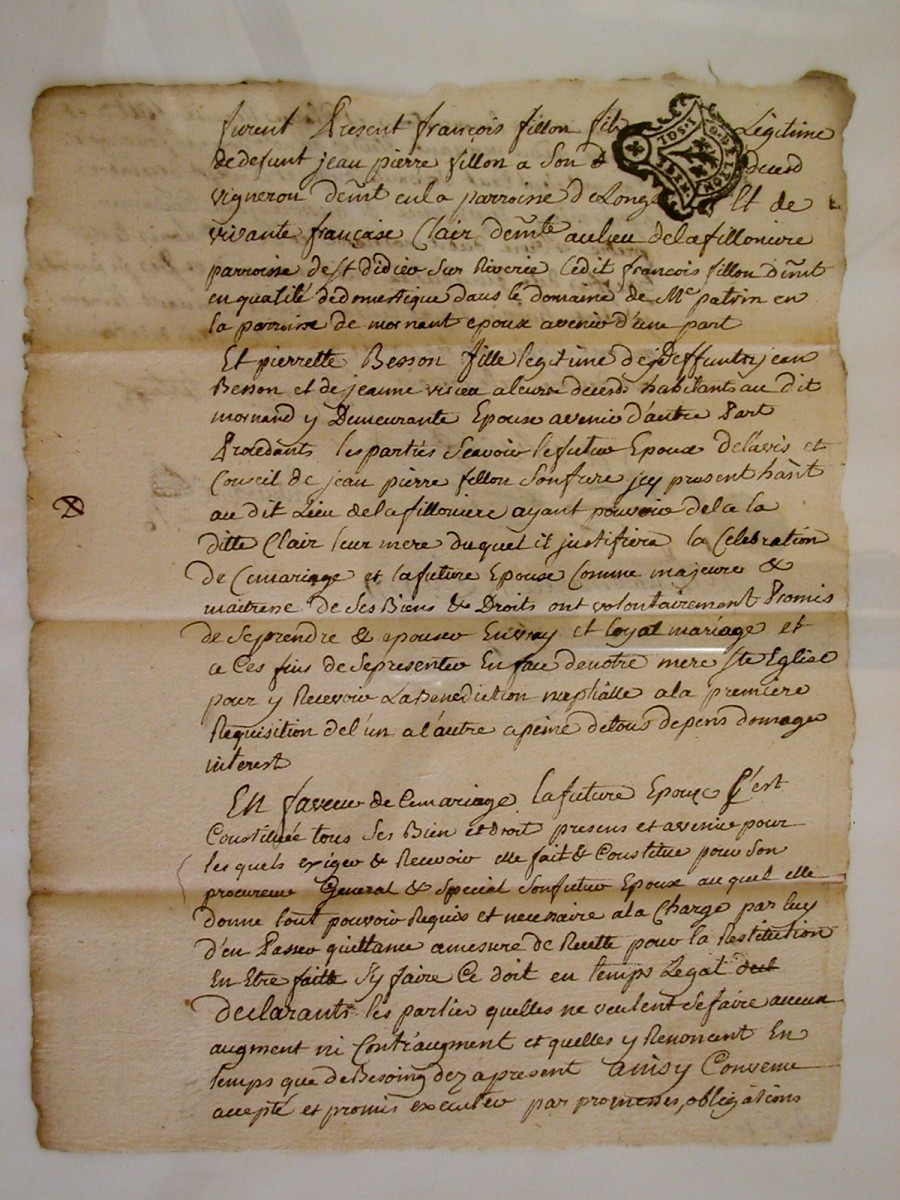 furent Present françois fillon fils Légitime
de defunt jean pierre fillon a Son decend
vigneron demt en la parroisse de Longe Et de
vivante françoise Clair demte au lieu de la filloniere
parroisse de St didier Sur Riverie Ledit françois fillon demt
en qualité de domestique dans le domaine de Mr patrin en
la parroisse de mornant epoux avenir d'une part
Et pierrette Besson fille legitime de deffunts jean
Besson et de jeanne a leurs decends habitants au dit
mornand y Demeurante Epouse avenir d'autre Part
Procedants les parties Scavoir le futur Epoux de l'avis et
Conseil de jean pierre fillon Son frere icy present habt
au dit Lieu de la filloniere ayant pouvoir de la
ditte Clair leur mere duquel il justifiera la Celebration
de Ce mariage et la future Epouse Comme majeure &
maitresse de Ses Biens & Droits ont volontairement Promis
de Se prendre & epouser En vray et loyal mariage et
a Ces fins de Se presenter En face de notre mere Ste Eglise
pour y Recevoir La Benediction nuptialle a la premiere
Requisition de l'un a l'autre a peine de tous depens domage
interest
En faveur de Ce mariage la future Epouse S'est
Constituée tous Ses Bien et droit presens et avenir pour
les quels exiger & Recevoir elle fait & Constitue pour Son
procureur General & Special Son futur Epoux au quel elle
donne tout pouvoir Requis et necessaire a la Charge par luy
d'en Passer quittance a mesure de Recette pour la Restitution
En Etre faitte S'y faire Ce doit en temps Legal
declarants les parties quelles ne veulent Se faire aucun
augment ni Contraugment et quelles y Renoncent En
temps que de Besoing dez a present ainsy Convenu
accepté et promis executer par promesses, obligations